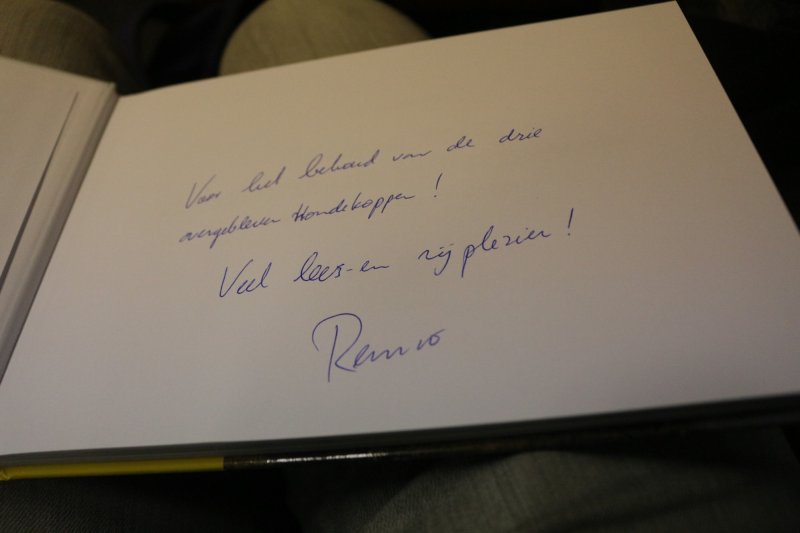 Voor het behoud van de drie
overgebleven Hondekoppen!
Veel lees- en rijplezier!
Remco